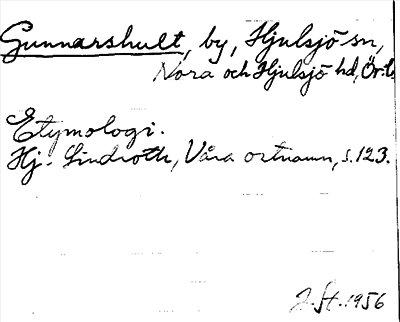 Gunnarshult, by, Hjulsjö sn,
Nora och Hjulsjö hd, Ör. l.
Etymologi.
Hj. Lindroth, Våra ortnamn, s. 123.
J. St. 1956